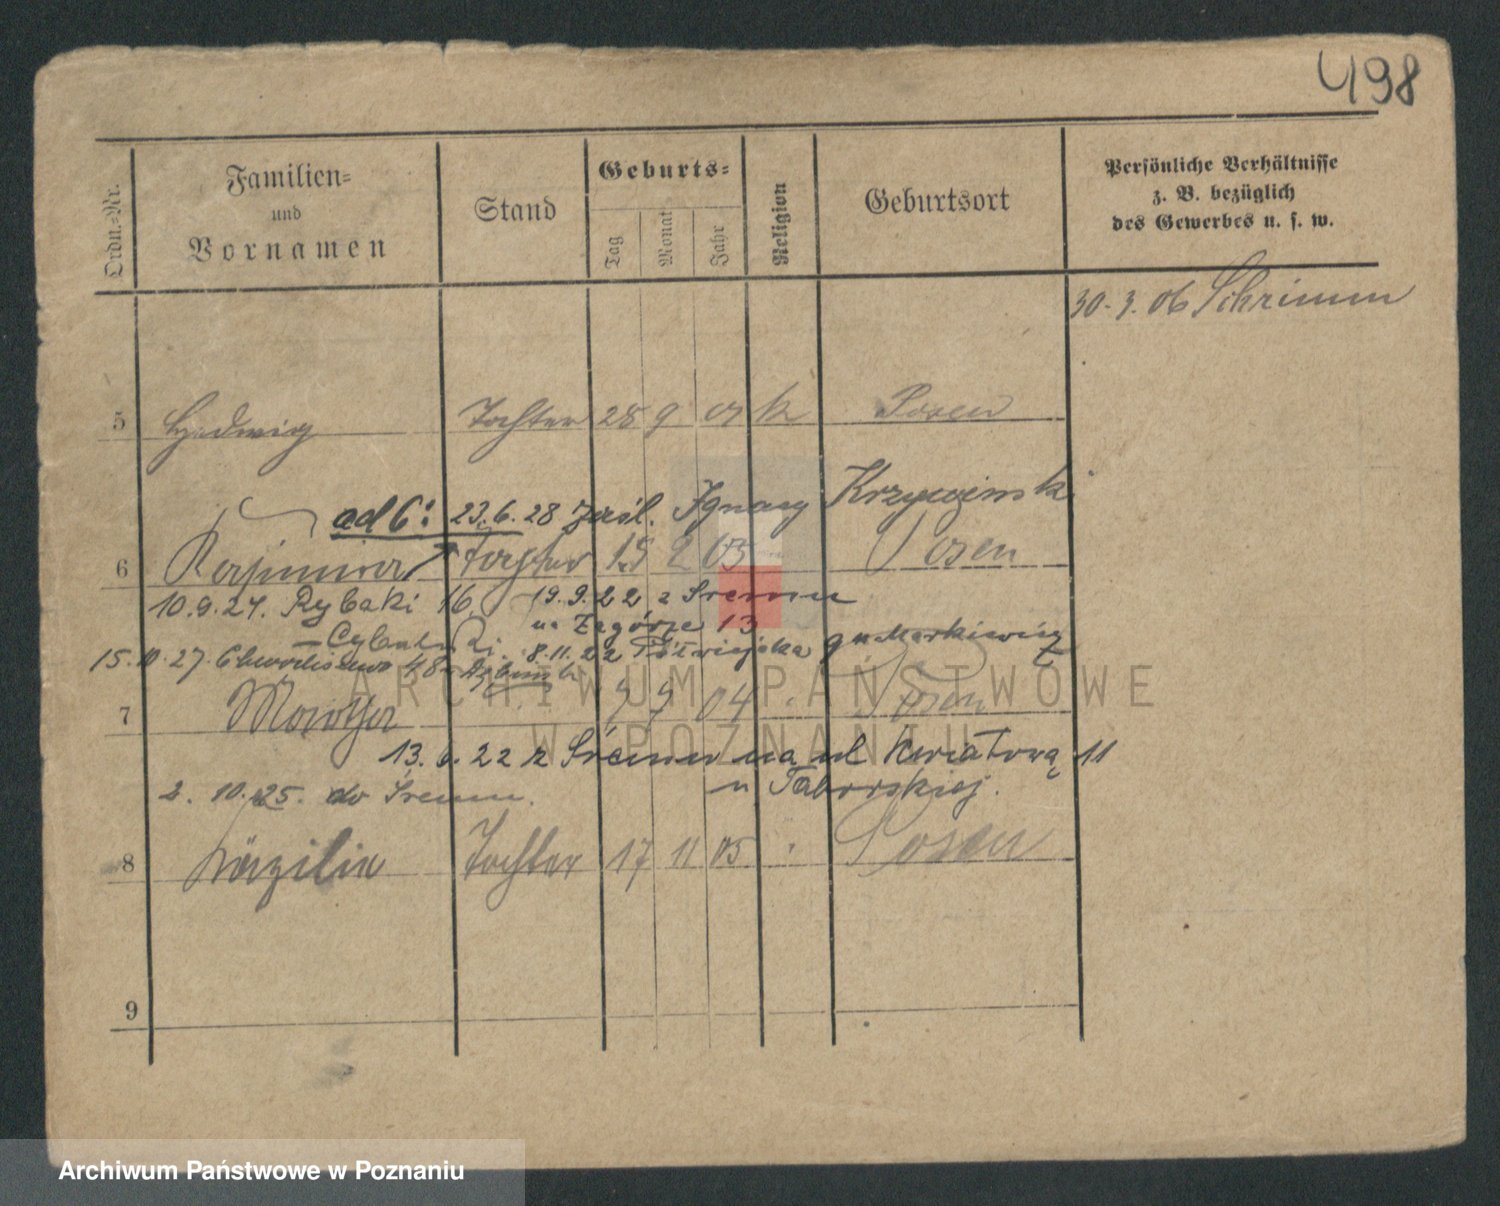 498
Ordn.-Nr.
Familien-
und
Vornamen
Stand
Geburts-
Tag
Monat
Jahr
Religion
Geburtsort
Persönliche Verhältnisse
z. B. bezüglich
des Gewerbes u. s. w.
30.3.06 Schrimm
5 Hedwig Tochter 28 9 01 k Posen
ad 6: 23.6.28 zaśl. Ignacy Krzywiński
6 Kasimira Tochter 2 03 Posen
10.9.27. Rybaki 16 19.9.22 z Śremu
na Zagórze 13
15.10.27. 48 8.11.22 Półwiejska 9 u Markiewicz
7 Martha 04 Posen
13.6.22 z Śremu na ul Kwiatową 11
2.10.25. do Śremu. u Taborskiej.
8 Cäzilie Tochter 17 11 05 " Posen
9
ARCHIWUM PAŃSTWOWE
W POZNANIU
Archiwum Państwowe w Poznaniu